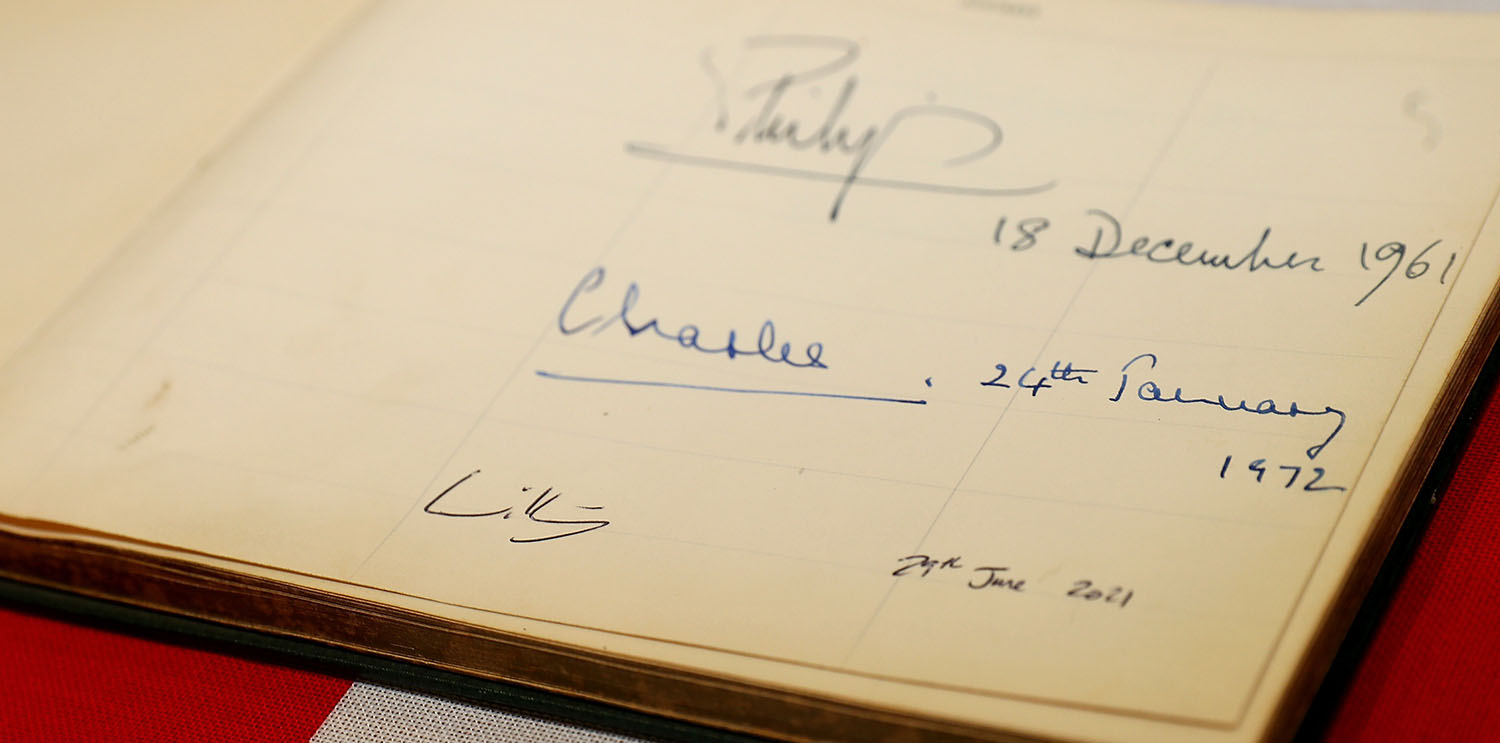 Philip
18 December 1961
Charles . 24th January
1972
29th June 2021